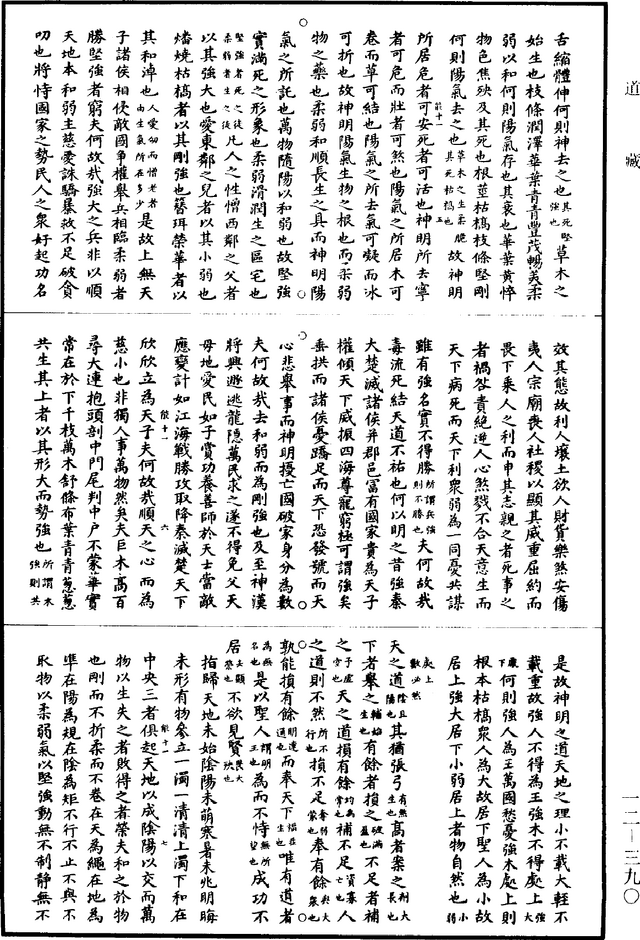 道藏
舌縮體伸何則神去之也其死堅強也草木之
始生也枝條潤澤華葉青青豐茂暢美柔
弱以和何則陽氣存也其衰也華葉黃悴
物色焦殃及其死也根莖枯槁枝條堅剛
何則陽氣去之也草木之生柔脆其死枯槁也故神明
能十一
五
所居危者可安死者可活也神明所去寧
者可危而壯者可煞也陽氣之所居木可
卷而草可結也陽氣之所去氣可凝而冰
可折也故神明陽氣生物之根也而柔弱
物之藥也柔弱和順長生之具而神明陽
氣之所託也萬物隨陽以和弱也故堅強
實滿死之形象也柔弱滑潤生之區宅也
堅強者死之徒柔弱者生之徒凡人之性憎西鄰之父者
以其強大也愛東鄰之兒者以其小弱也
燔燒枯槁者以其剛強也簪珥榮華者以
其和淖也人愛幼而憎老者由生氣所在多少是故上無天
子諸侯相侵敵國爭權舉兵相臨柔弱者
勝堅強者窮夫何故哉強大之兵非以順
天地本和弱主慈愛誅驕暴救不足破貪
叨也將恃國家之勢民人之衆好起功名
效其態故利人壤土欲人財貨樂煞安傷
夷人宗廟喪人社稷以顯其威重屈約而
畏下乘人之利而申其志親之者死事之
者禍咎責絕逆人心煞戮不合天意生而
天下病死而天下利衆弱為一同憂共謀
雖有強名實不得勝所謂兵強則不勝也夫何故哉
毒流死結天道不祐也何以明之昔強秦
大楚滅諸侯并郡邑富有國家貴為天子
權傾天下威振四海尊寵窮極可謂強矣
垂拱而諸侯憂蹻足而天下恐發號而天
心悲舉事而神明擾亡國破家身分為數
夫何故哉去和弱而為剛強也及至神漢
將興遯逃龍隱萬民求之遂不得免父天
母地愛民如子賞功養善師於天士當敵
應變計如江海戰勝攻取降秦滅楚天下
欣欣立為天子夫何故哉順天之心而為
能十一
六
慈小也非獨人事萬物然矣夫巨木高百
尋大連抱頭剖中門尾判中戶不蒙華實
常在於下千枝萬木舒條布葉青青蔥蔥
共生其上者以其形大而勢強也所謂木強則共
是故神明之道天地之理小不載大輕不
載重故強人不得為王強木不得處上強大處下
何則強人為王萬國愁憂強木處上則
根本枯槁衆人為大故居下聖人為小故
居上強大居下小弱居上者物自然也弱小處上數必然
天之道陰且陽也其猶張弓有無生也高者案之削大長也
下者舉之輔始生也有餘者損之破滿益也不足者補
之予虛空也天之道損有餘均為奪弱常也而補不足資寡亡也人
之道則不然所行也損不足奪弱寒也奉有餘與大衆也
孰能損有餘明達通也而奉天下恬在生也唯有道者
為無名也是以聖人謂明王也為而不恃無所望也成功不
居去顯榮也不欲見賢民大殃也
指歸天地未始陰陽未萌寒暑未兆明晦
未形有物參立一濁一清清上濁下和在
中央三者俱起天地以成陰陽以交而萬
能十一
七
物以生失之者敗得之者榮夫和之於物
也剛而不折柔而不卷在天為繩在地為
準在陽為規在陰為矩不行不止不與不
取物以柔弱氣以堅強動無不制靜無不
一二—三九〇